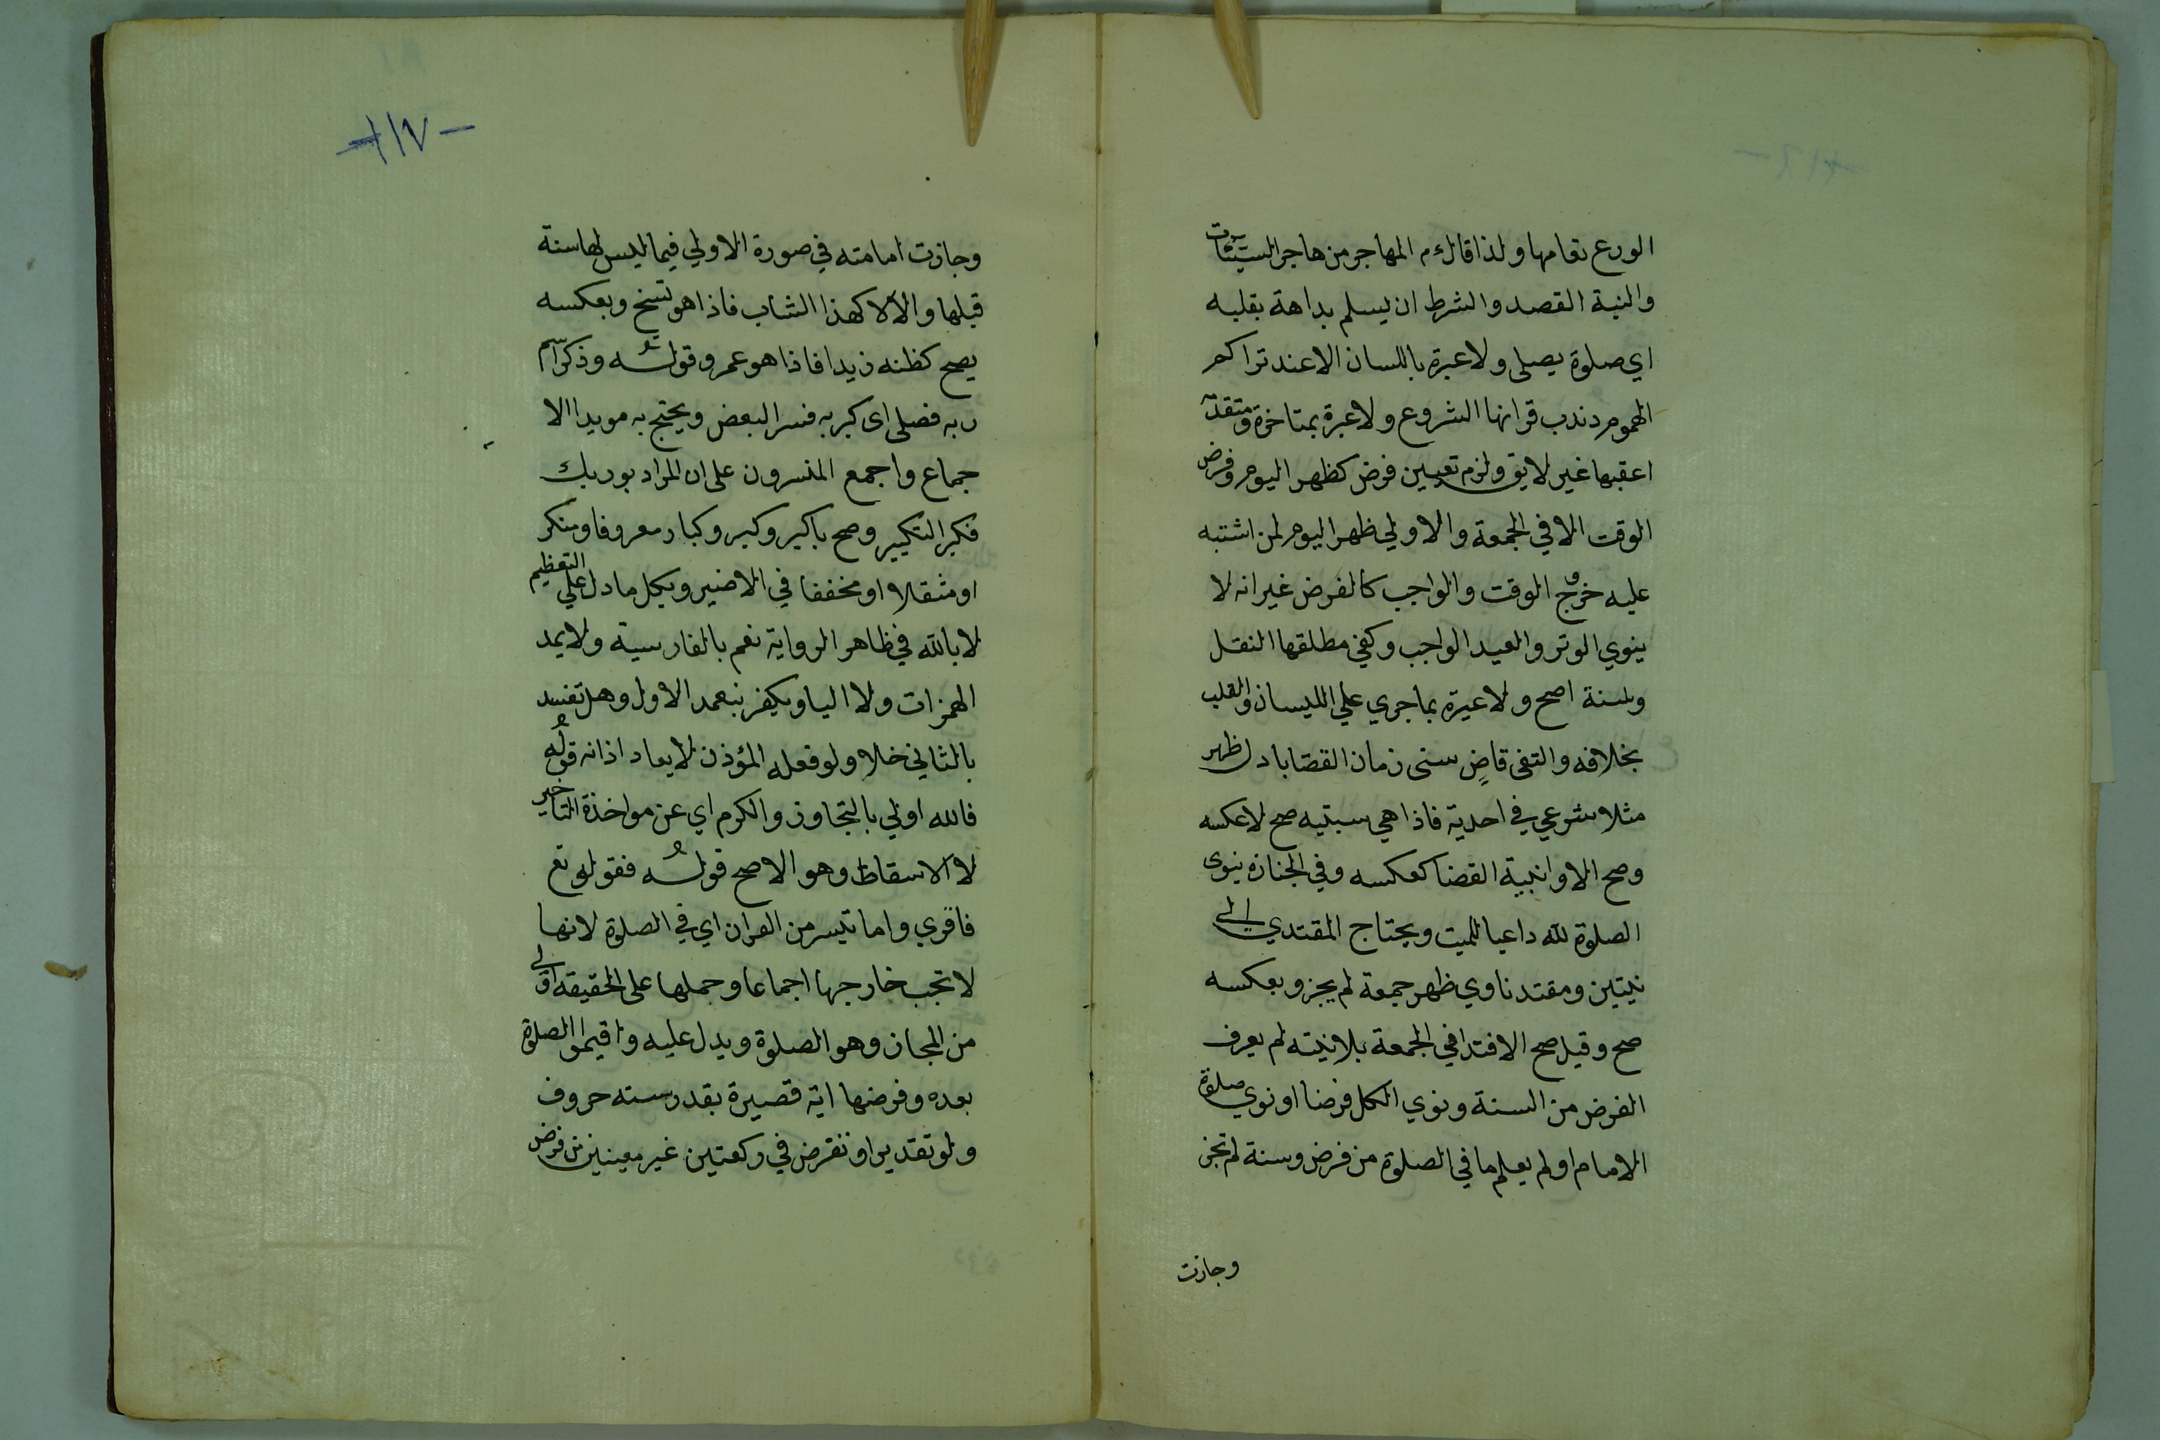 الورع تعامها ولذا قال ءم المهاجر من هاجر السيئات
والنية القصد والشرط ان يسلم بداهة بقلبه
اي صلوة يصلي ولا عبرة باللسان الا عند تراكم
الهموم وندب قرانها الشروع ولا عبرة بمتاخرة ومتقدة
اعقبها غير لايق ولزم تعيين فرض كظهر اليوم وفرض
الوقت الا في الجمعة والاولي ظهر اليوم لمن اشتبه
عليه خروج الوقت والواجب كالفرض غير انه لا
ينوي الوتر والعيد الواجب وكفي مطلقها النفل
وسنة اصح ولا عبرة بما جري علي الليسان والقلب
بخلافه والتفى قاضٍ سنى زمان القضا باد لظهر
مثلا شوعي في احدية فاذا هي سبتيه صح لا عكسه
وصح الاوا بنية القضا كعكسه وفي الجنازه ينوى
الصلوة لله داعيا للميت ويحتاج المقتدي الي
نيتين ومقتد ناوي ظهر جمعة لم يجز وبعكسه
صح وقيل صح الاقتدا في الجمعة بلا نيته لم يعرف
الفرض من السنة ونوي الكل فرضا او نوي صلوة
الامام او لم يعلم ما في الصلوة من فرض وسنة لم تجز
وجازت
-١١٧-
وجازت امامته في صورة الاولي فيما ليس لها سنة
قبلها والا لا كهذا الشاب فاذا هو تسخ وبعكسه
يصح كظنه زيدا فاذا هو عمرو قوله وذكر اسم
ربه فصلي اى كبر به فسر البعض ويحتج به مويدا الا
جماع واجمع المفسرون على ان المراد بوربك
فكبر التكبير وصح باكبر وكبير وكبار معروفا ومنكر
او مثقلا او مخففا في الاخير وبكل ما دل علي التعظيم
لا بالله في ظاهر الرواية نعم بالفارسية ولا يمد
الهمزات ولا اليا ويكفر بتعمد الاول وهل تفسد
بالثاني خلاو ولو فعله المؤذن لا يعاد اذانه قوله
فالله اولي بالتجاوز والكرم اي عن مواخذة التاخير
لا الاسقاط وهو الاصح قوله فقوله تع
فاقري واما تيسر من القران اي في الصلوة لانها
لا تجب خارجها اجماعا وحملها على الحقيقه اولي
من المجاز وهو الصلوة ويدل عليه واقيموا الصلوة
بعده وفرضها اية قصيرة بقدر سته حروف
ولو تقديرا وتفرض في ركعتين غير معينين من فرض